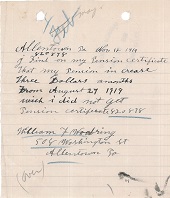 Allentown Pa Nov 14 1919
820898
I find on my Pension certificate
That my Pension in crease
Three Dollars a month
From August 27 1919
wich i did not get
Pension certificate 820898
William F Woodring
508 Washington St
Allentown Pa
(over)